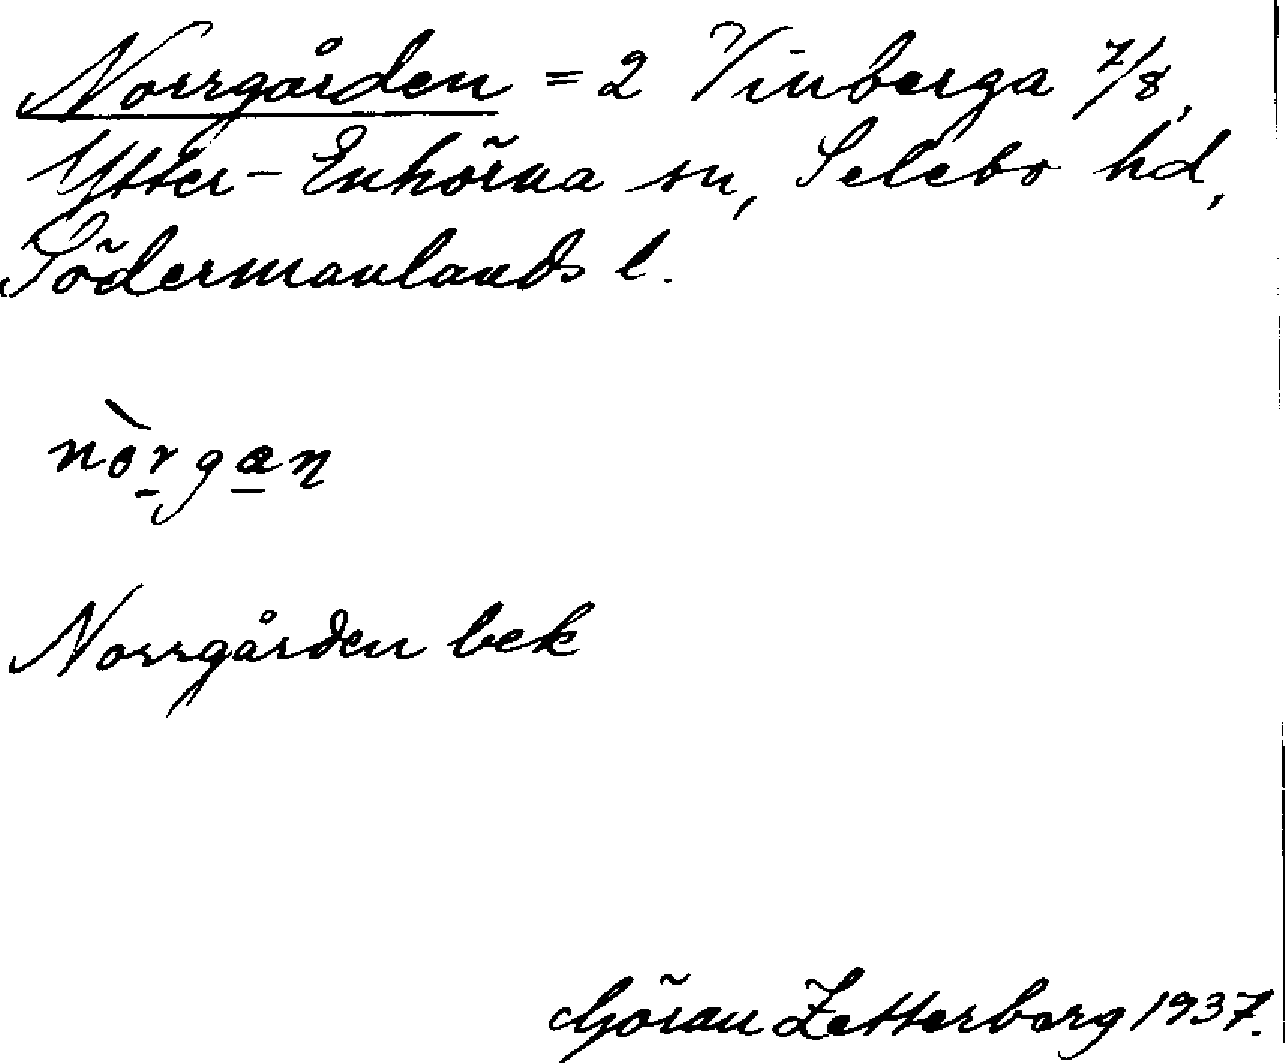 Norrgården = 2 Vinberga 7/8,
Ytter-Enhörna sn, Selebo hd,
Södermanlands l.
nòrgan
Norrgården bek
Göran Zetterborg 1937.